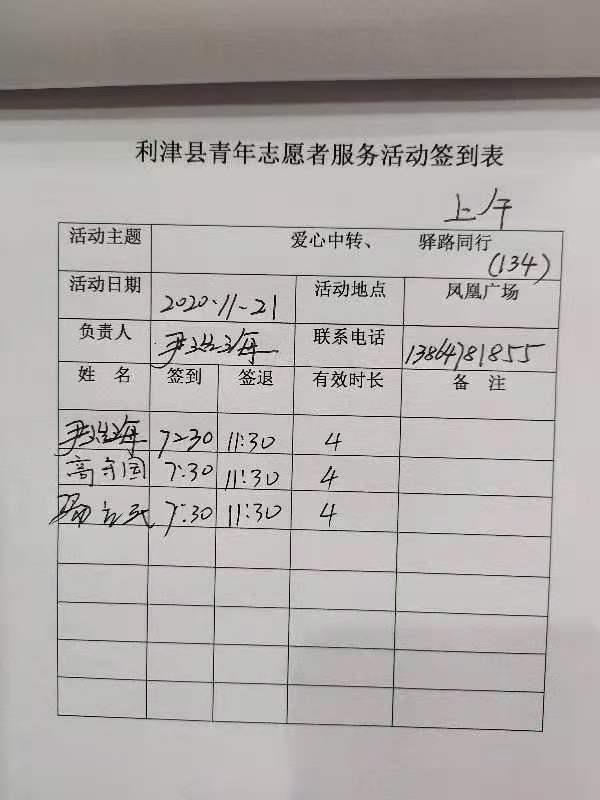 利津县青年志愿者服务活动签到表
上午
活动主题 爱心中转、 驿路同行
(134)
活动日期 2020.11-21 活动地点 凤凰广场
负责人 尹 海 联系电话 13864781855
姓 名 签到 签退 有效时长 备 注
尹 海 7:30 11:30 4
高守国 7:30 11:30 4
7:30 11:30 4